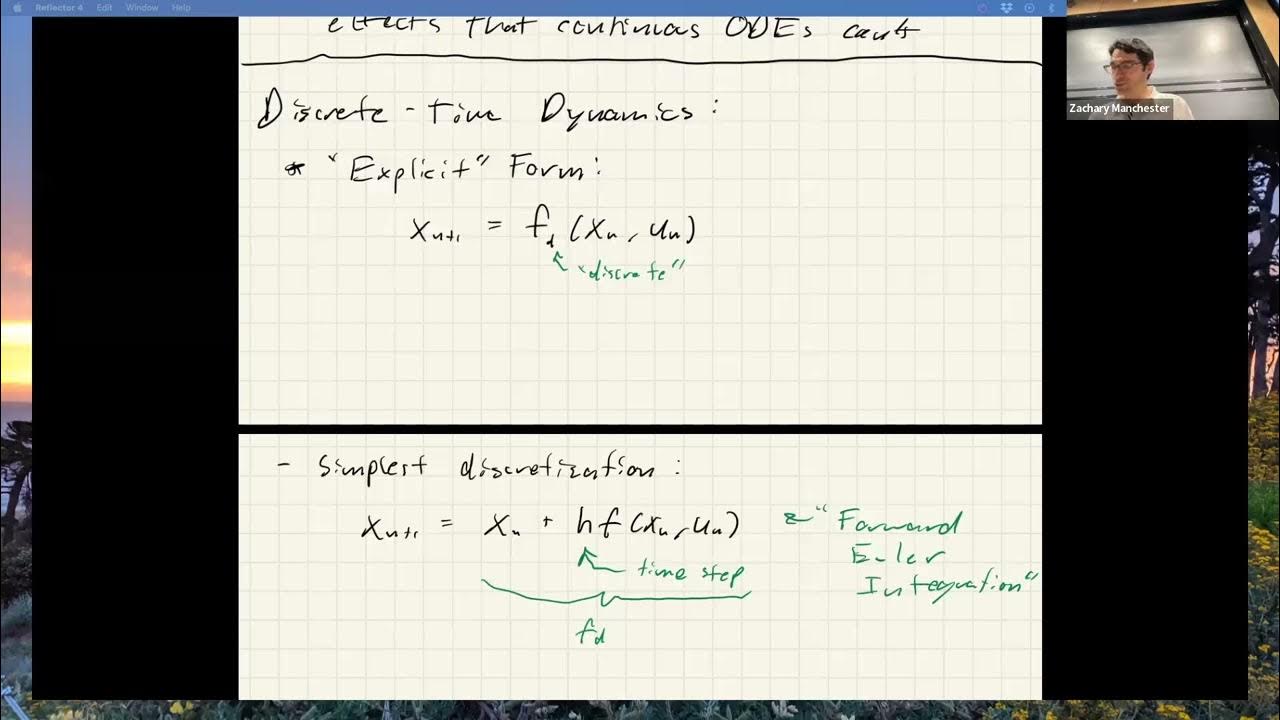 Reflector 4 Edit Window Help
effects that continuos ODEs can't
Discrete - Time Dynamics :
* "Explicit" Form :
xₙ₊₁ = f_d (xₙ, uₙ)
"discrete"
- Simplest discretization :
xₙ₊₁ = xₙ + hf(xₙ, uₙ)
time step
f_d
"Forward
Euler
Integration"
Zachary Manchester